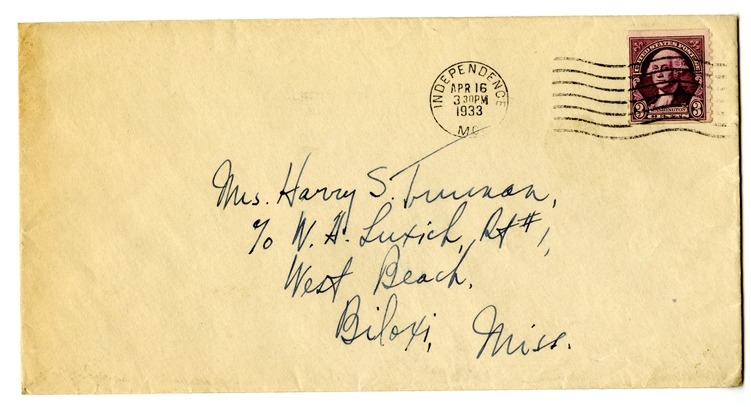 INDEPENDENCE
APR 16
3 30PM
1933
MO.
UNITED STATES POSTAGE
WASHINGTON
3 3
CENTS
Mrs. Harry S. Truman,
c/o W. H. Luxich, Rt #1,
West Beach,
Biloxi, Miss.